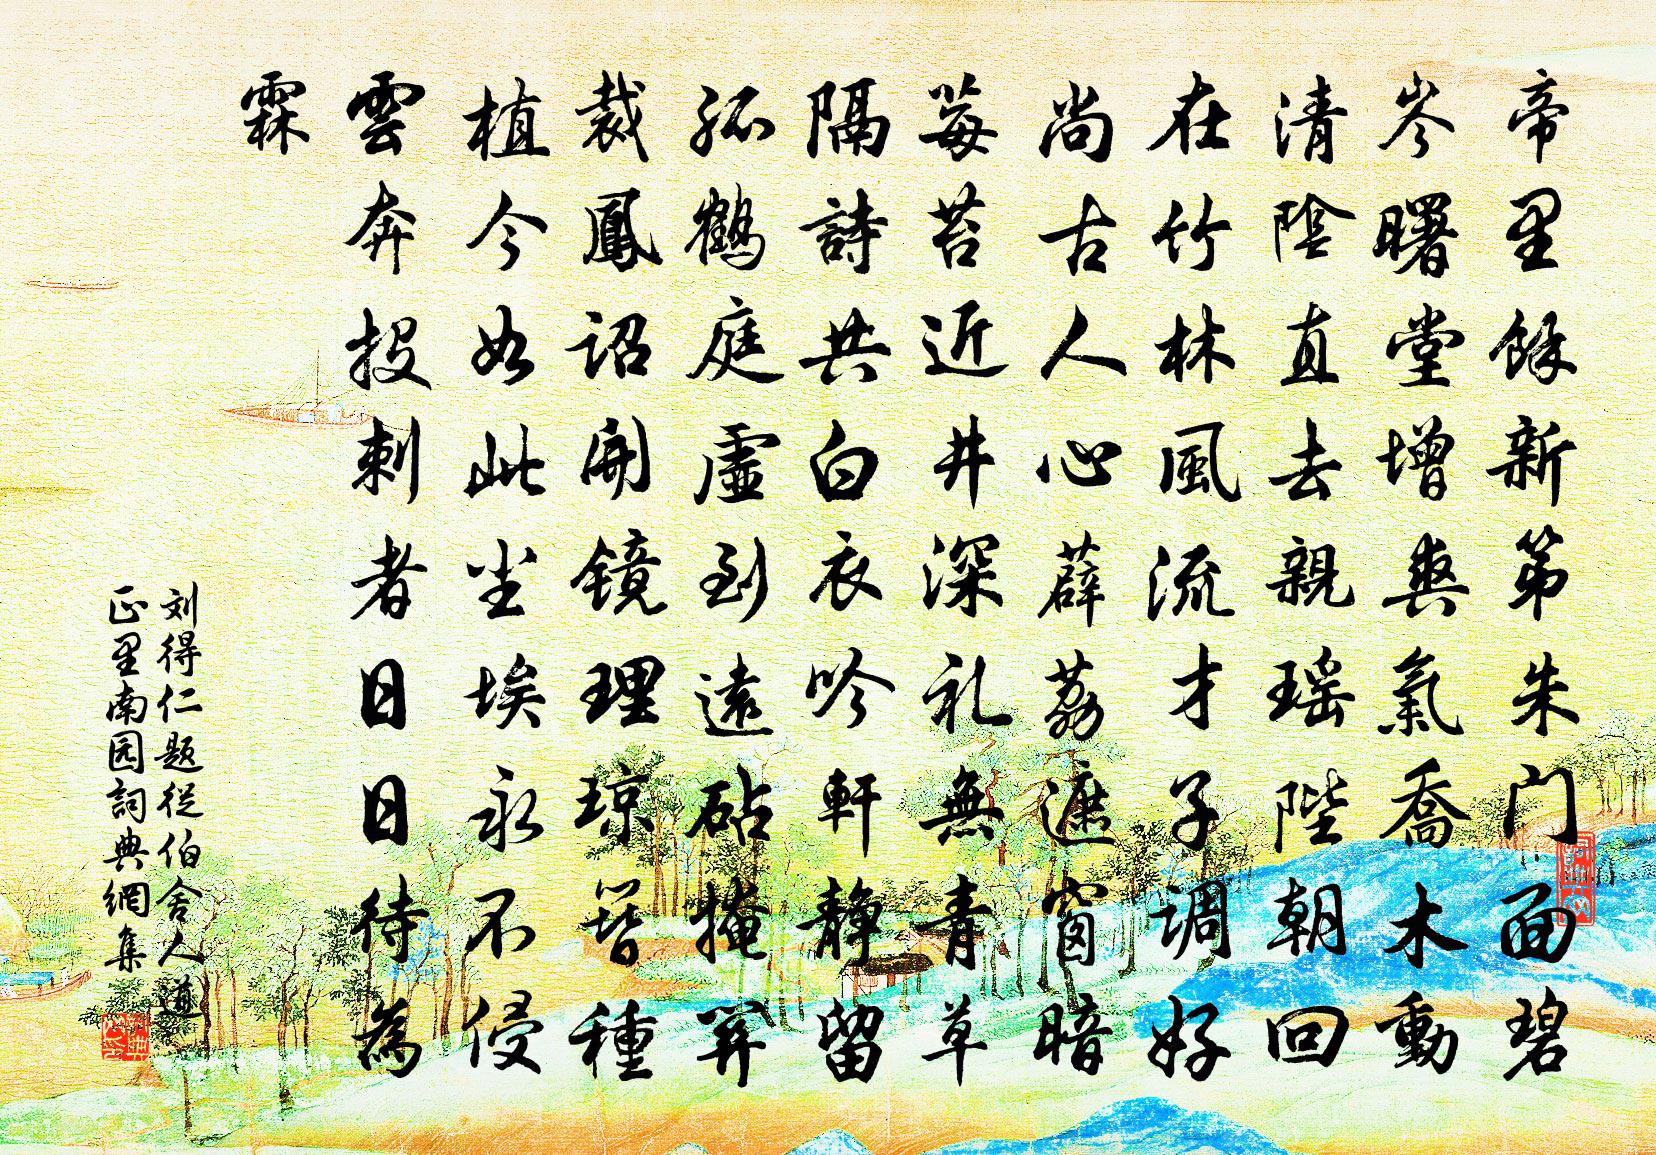 帝里餘新第朱门面碧
岑曙堂增爽氣喬木動
清陰直去親瑶陛朝回
在竹林風流才子调好
尚古人心薜荔遮窗暗
莓苔近井深礼無青草
隔詩共白衣吟軒静留
孤鶴庭虚到遠砧掩關
裁鳳詔開鏡理琼簪種
植今如此尘埃永不侵
雲奔投刺者日日待為
霖
刘得仁题從伯舍人道
正里南园詞典網集